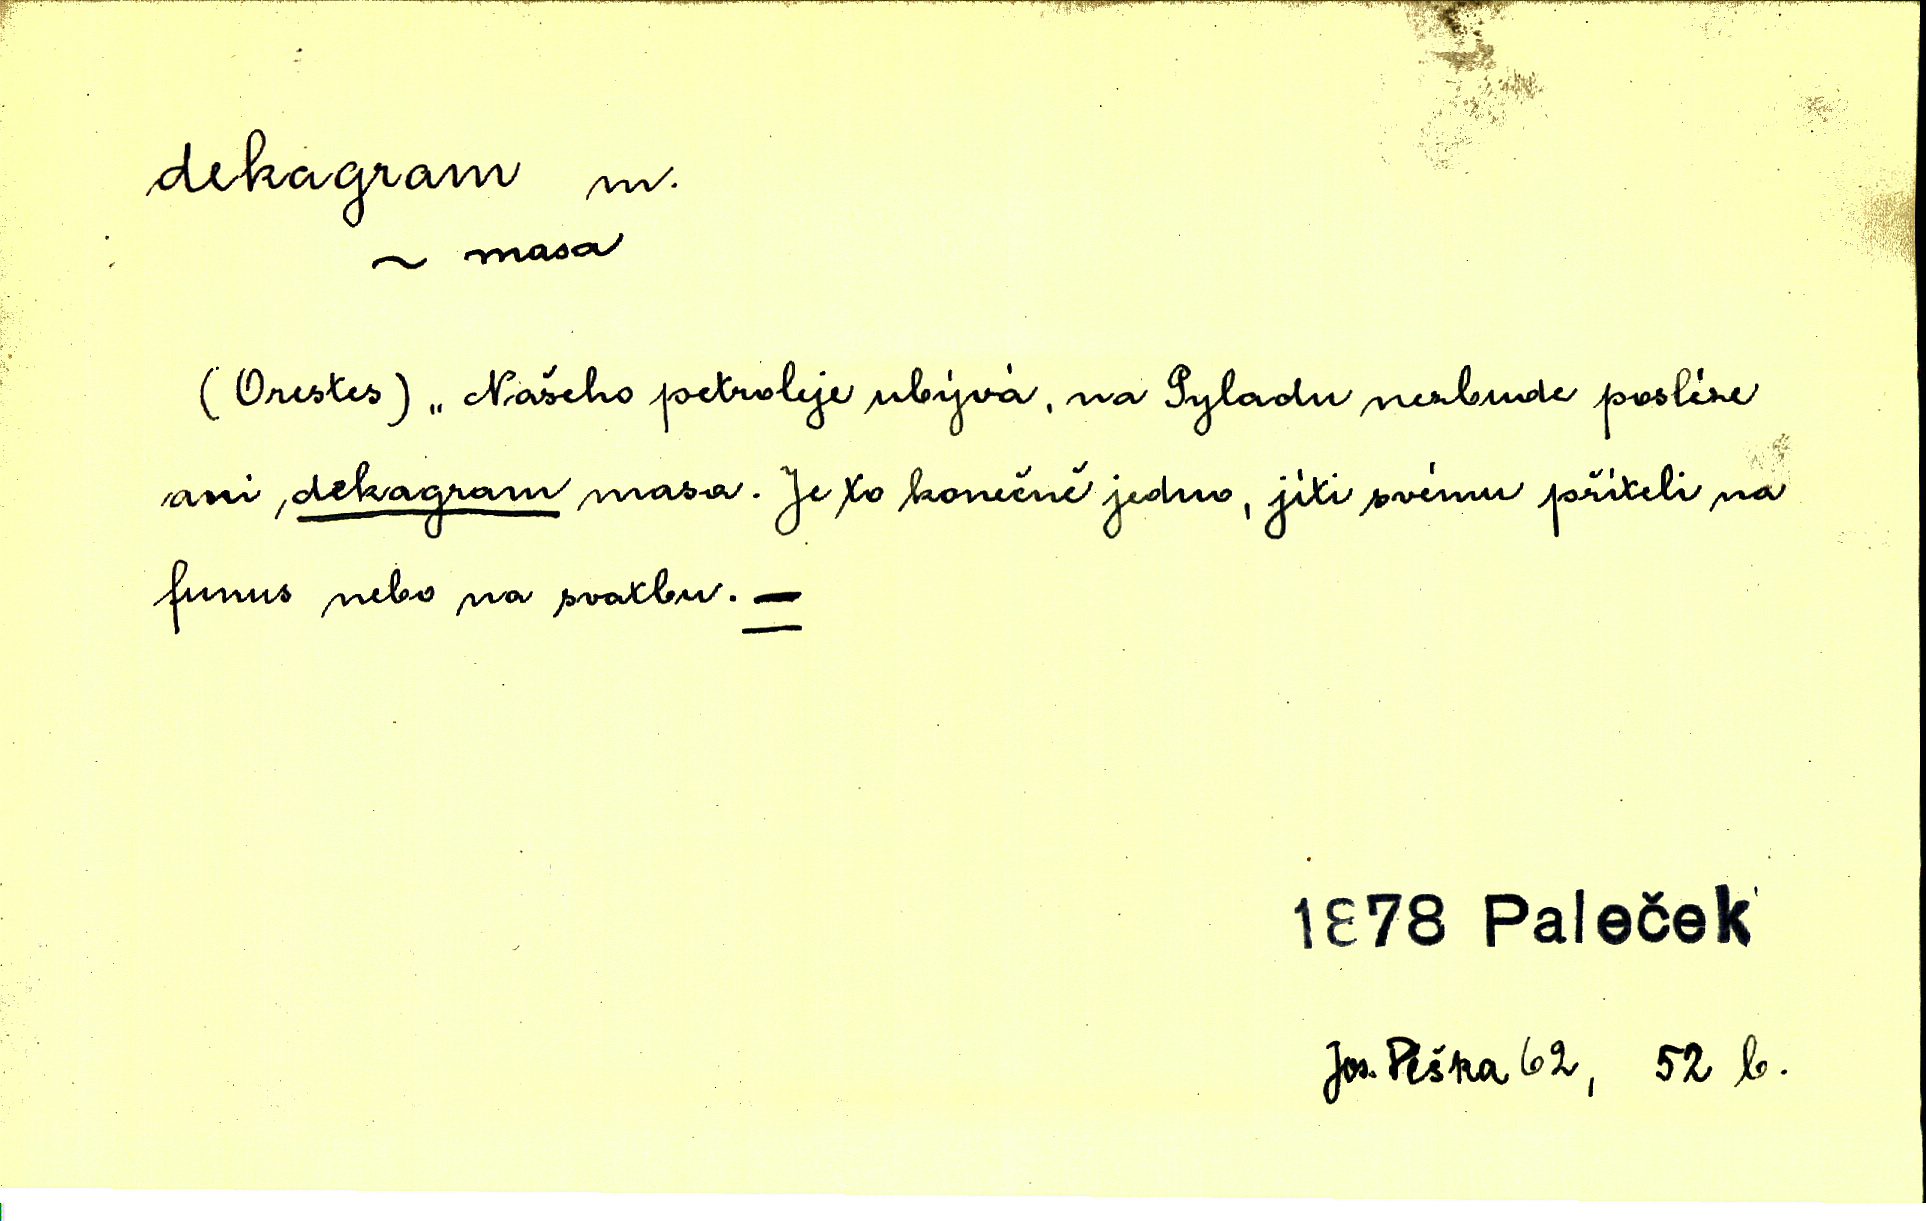 dekagram m.
~ masa
(Orestes) „Našeho petroleje ubývá, na Pyladu nezbude posléze
ani dekagram masa. Je to konečně jedno, jíti svému příteli na
funus nebo na svatbu. =
1878 Paleček
Jos. Pěška 62, 52 b.